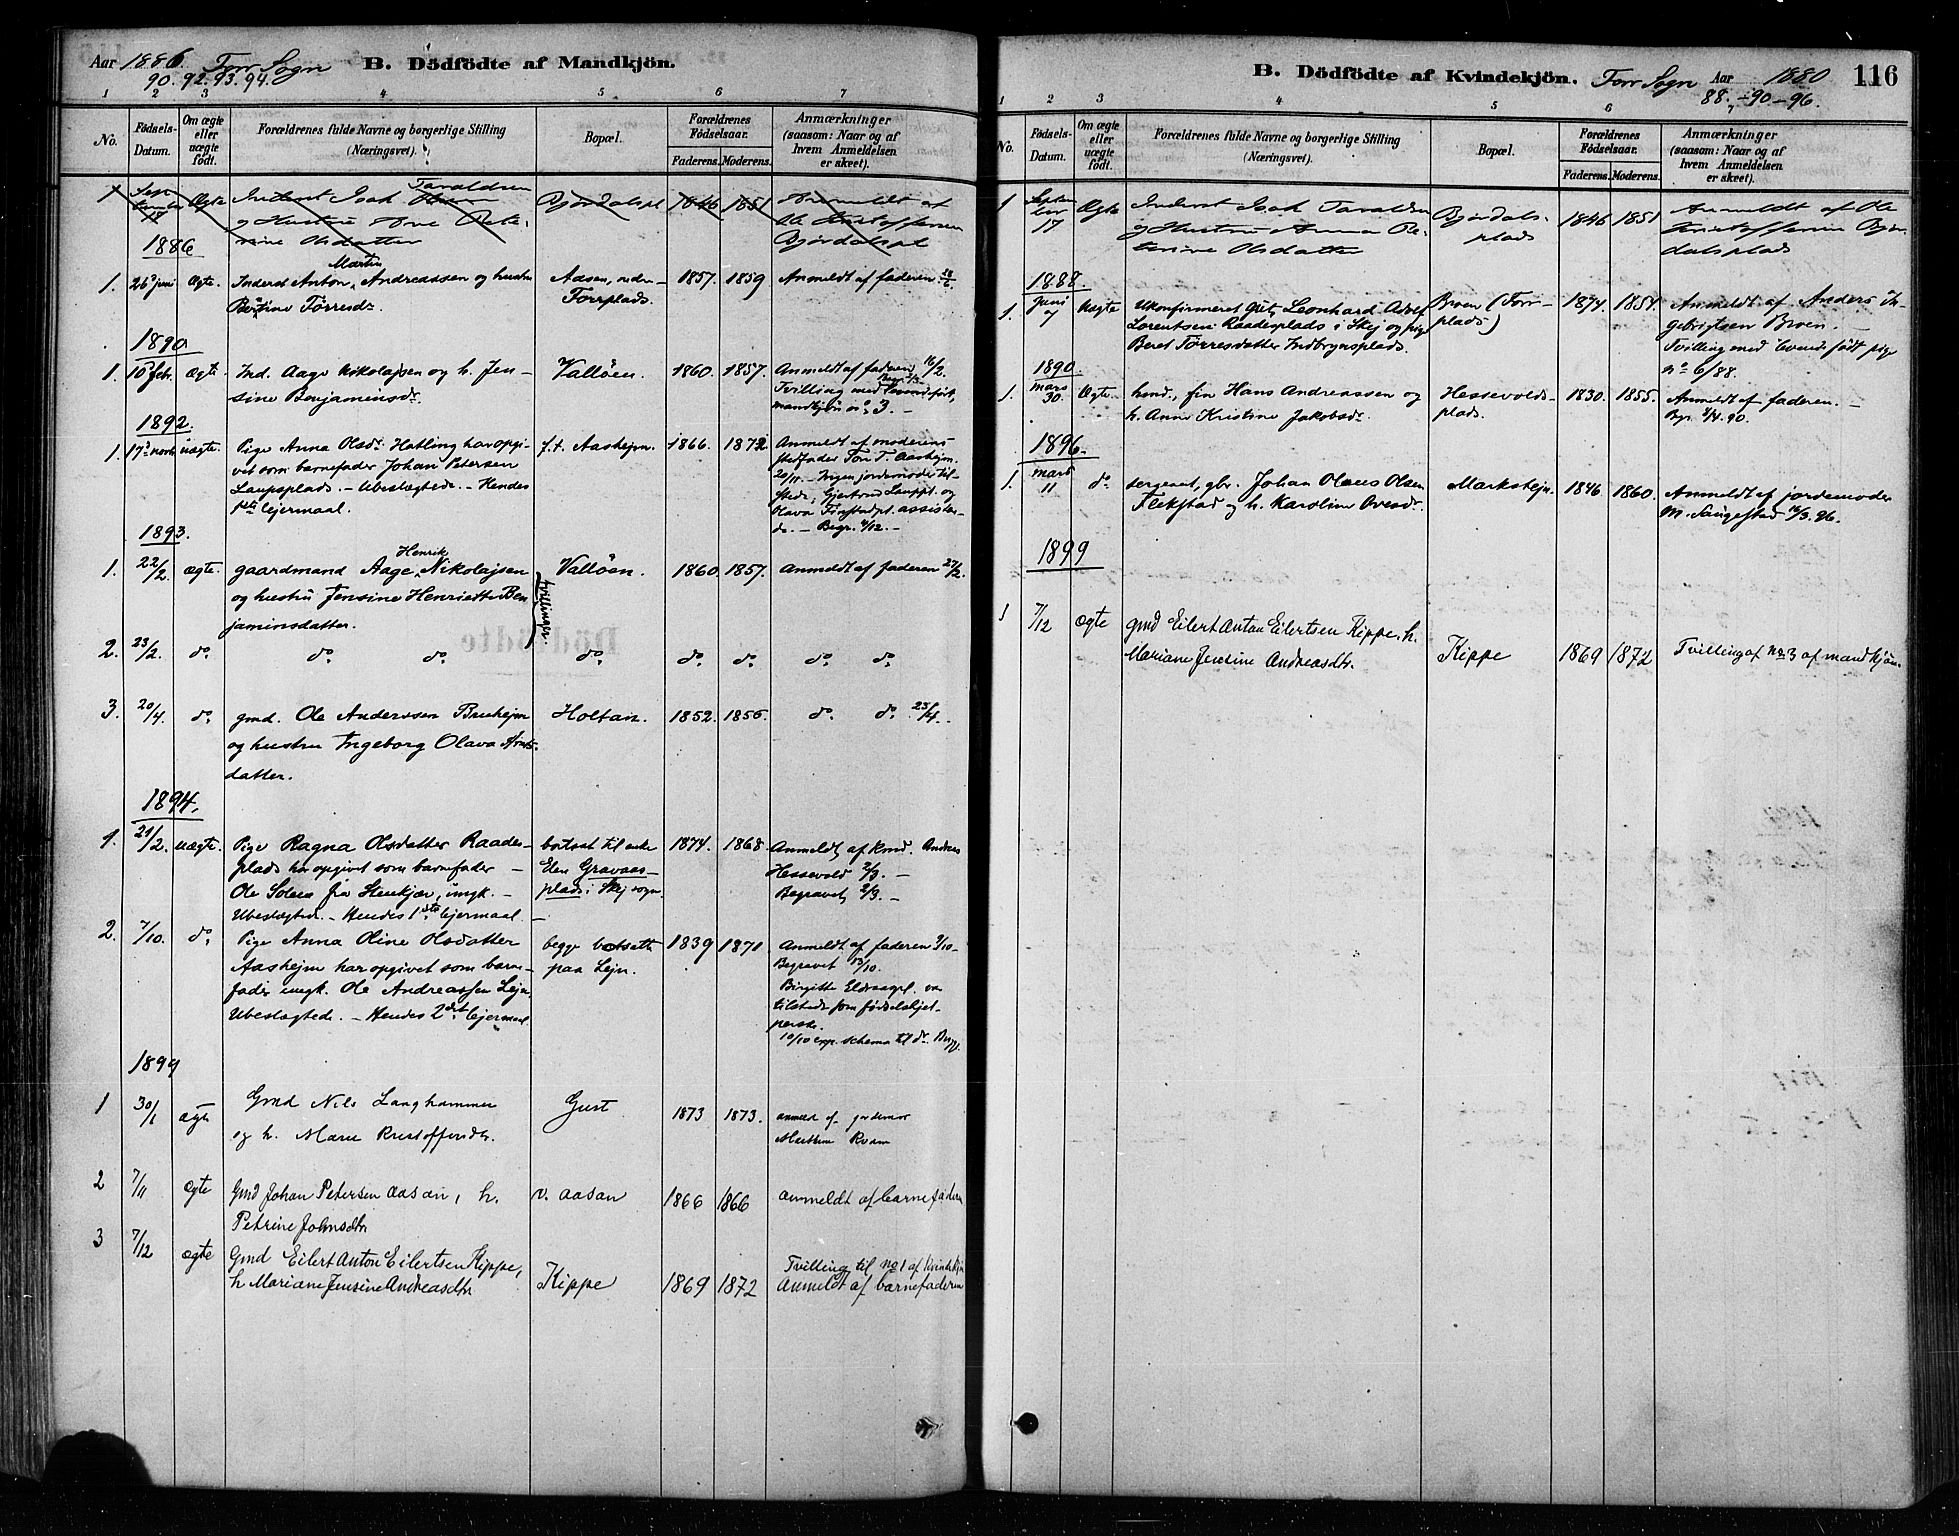 Aar 1886. Forr Sogn B. Dödfödte af Mandkjön.
90. 92. 93. 94.
1 2 3 4 5 6 7
No. Födsels-Datum. Om ægte eller uægte födt. Forældrenes fulde Navne og borgerlige Stilling (Næringsvei). Bopæl. Forældrenes Födselsaar. Faderens. Moderens. Anmærkninger (saasom: Naar og af hvem Anmeldelsen er skeet).
1 September 17 Ægte Inderst Isak Taraldsen
og Hustru Petesine Olsdatter Bjørdalspl 1846 1851 Anmeldt af
Ole Kristoffersen
Bjørdalspl
1886
1. 26 juni Ægte. Inderst Anton Martin Andreassen og hustru
Bertine Tørresdr. Aasen, nedre
Forrplads. 1857. 1859 Anmeldt af faderen 28/6.
1890
1. 10 febr. Ægte. Ind. Aage Nikolajsen og h. Jen-
sine Benjaminsdr. Valløen. 1860. 1857. Anmeldt af faderen 16/2.
Tvilling med levendefødt
mandkjøn no. 3. –
1892.
1. 17 novb. uægte. Pige Anna Olsdr. Hatling har opgi-
vet som barnefader Johan Petersen
Laupsplads. – Ubeslægtede. – Hendes
1ste lejermaal. f.t. Aashejm. 1866. 1872 Anmeldt af moderens
stedfader Tor T. Aashejm.
20/11. – Ingen jordemoder til-
stede; Gjertrud Lauppl. og
Olava Finstadpl. assister-
de. – Begr. 4/12. –
1893.
1. 22/2. ægte. gaardmand Aage Henrik Nikolajsen
og hustru Jensine Henriette Ben-
jaminsdatter. tvillinger. Valløen. 1860. 1857. Anmeldt af faderen 27/2.
2. 23/2. do. do. do. do. do. do. do. do.
3. 20/4. do. gmd. Ole Anderssen Bruhejm
og hustru Ingeborg Olava Arnts-
datter. Holtan. 1852. 1856. do. do. 23/4.
1894.
1. 21/2. uægte. Pige Ragna Olsdatter Raades-
plads har opgivet som barnefader –
Ole Solem fra Stenkjær, ungk. –
Ubeslægtede. – Hendes 1ste lejermaal. – bortsat til enke
Elen Gravaas-
plads i Skej sogn. 1874. 1868. Anmeldt af kmd. Andreas
Hessevold 2/3. –
Begravet 2/3. –
2. 7/10. do. Pige Anna Oline Olsdatter
Aashejm har opgivet som barne-
fader ungk. Ole Andreassen Lejn.
Ubeslægtede. – Hendes 2det lejermaal begge bosatte
paa Lejn. 1839 1871 Anmeldt af faderen 9/10.
Begravet 13/10.
Birgitte Eldraapl. var
tilstede som fødselshjel-
perske.
10/10 exp. schema til dr. Bugge.
1899
1 30/1 ægte Gmd Nils Langhammer
og h. Marie Kristoffersdtr. Gust 1873 1873. anmeld af jordemor
2 7/11 ægte Gmd Johan Petersen Aasan, h.
Petrine Johnsdtr v. Aasan 1866 1866 Anmeldt af barnefaderen
3 7/12 ægte Gmd Eilert Anton Eilertsen Kippe,
h. Mariane Jensine Andreasdtr Kippe 1869 1872 Tvilling til no 1 af Kvindekjøn
Anmeldt af barnefaderen
B. Dödfödte af Kvindekjön. Forr Sogn Aar 1880 116
88. – 90 – 96.
1 2 3 4 5 6
No. Födsels-Datum. Om ægte eller uægte födt. Forældrenes fulde Navne og borgerlige Stilling (Næringsvei). Bopæl. Forældrenes Födselsaar. Faderens. Moderens. Anmærkninger (saasom: Naar og af hvem Anmeldelsen er skeet).
1 September 17 Ægte Inderst Isak Taraldsen
og Hustru Anna Pe-
tersine Olsdatter Bjørdals-
plads 1846 1851 Anmeldt af Ole
Kristoffersen Bjør-
dalsplads
1888.
1. juni 7 Uægte Ukonfirmeret Gut Leonhard Adolf
Lorentsen Raadesplads i Skej og pige
Beret Tørresdatter Indbrynsplads. Broen (Forr-
plads) 1874. 1854. Anmeldt af Anders In-
gebrigtsen Broen. –
Tvilling med levende født pige
no 6/88.
1890.
1. mars 30 Ægte. husmd., fin Hans Andreassen og
h. Anne Kristine Jakobsdr. Hessevolds-
plads. 1830. 1855. Anmeldt af faderen. –
Bgr. 2/4. 90.
1896.
1. mars 11 do sergeant, gbr. Johan Olaus Olsen
Flekstad og h. Karoline Ovesdr. Markshejn. 1846. 1860. Anmeldt af jordemoder
M. Saugestad 12/3. 96.
1899
1 7/12 Ægte gmd Eilert Anton Eilertsen Kippe, h.
Mariane Jensine Andreasdtr. Kippe 1869 1872 Tvilling af no 3 af mandkjøn